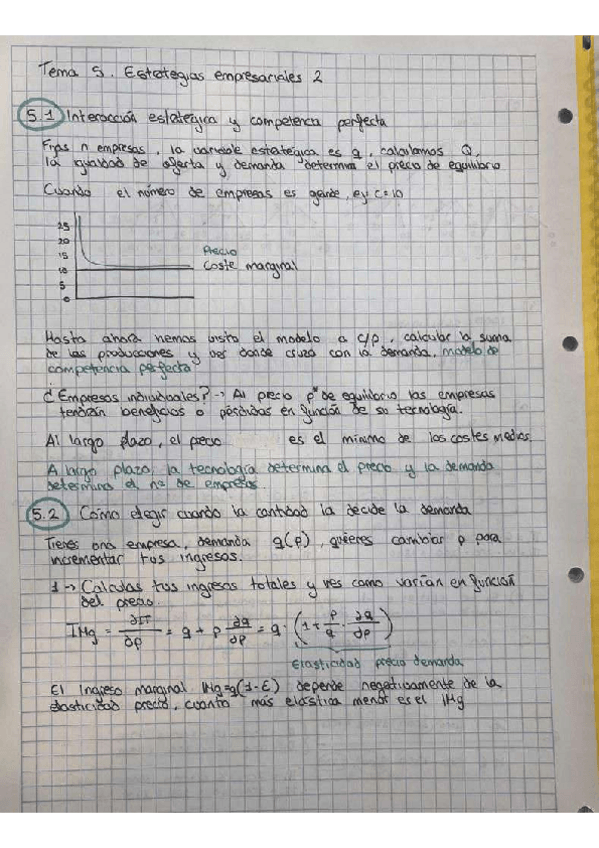 Tema 5. Estrategias empresariales 2
5.1 Interacción estratégica y competencia perfecta
Fijas n empresas, la variable estratégica es q, calculamos Q,
la igualdad de oferta y demanda determina el precio de equilibrio
Cuando el número de empresas es grande, ej: c=10
25
20
15
10
5
0
Precio
Coste marginal
Hasta ahora hemos visto el modelo a c/p, calcular la suma
de las producciones y ver donde cruza con la demanda, modelo de
competencia perfecta
¿Empresas individuales? → Al precio p* de equilibrio las empresas
tendrán beneficios o pérdidas en función de su tecnología.
Al largo plazo, el precio es el mínimo de los costes medios.
A largo plazo, la tecnología determina el precio y la demanda
determina el nº de empresas
5.2 Cómo elegir cuando la cantidad la decide la demanda
Tienes una empresa, demanda q(p), quieres cambiar p para
incrementar tus ingresos.
1 → Calculas tus ingresos totales y ves como varían en función
del precio.
IMg = ∂IT/∂p = q + p ∂q/∂p = q · (1 + p/q · ∂q/∂p)
Elasticidad precio demanda
El Ingreso marginal IMg=q(1-E) depende negativamente de la
elasticidad precio, cuanto más elástica menor es el IMg